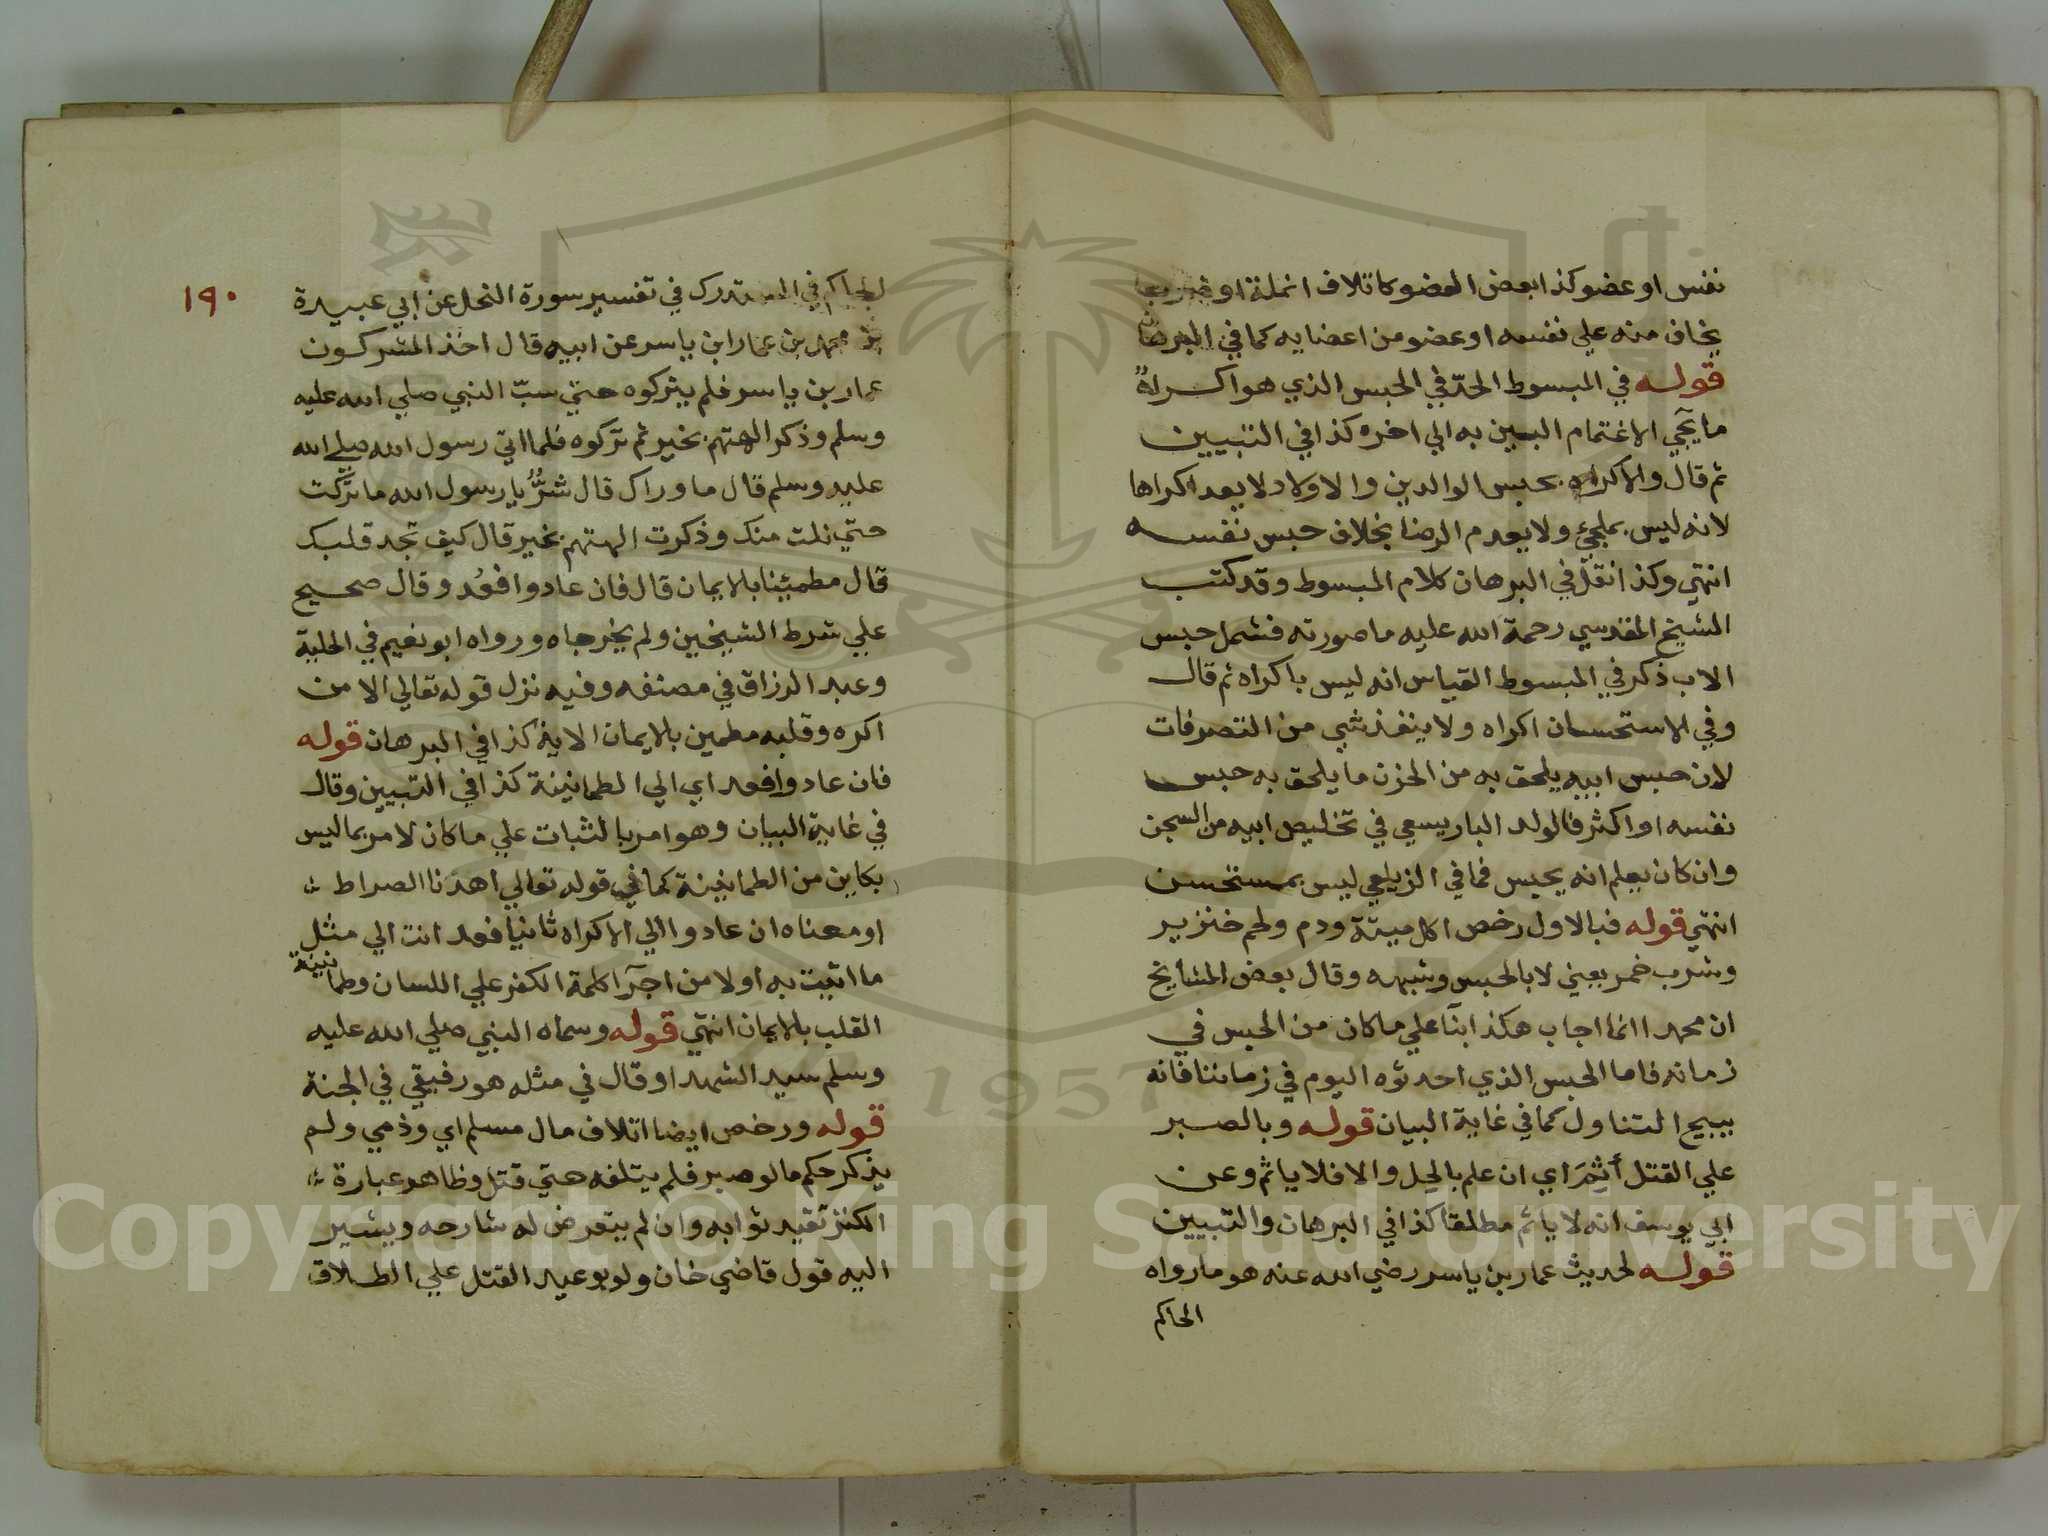 نفس او عضو كذا بعض العضو كاتلاف انملة او
يخاف منه علي نفسه او عضو من اعضايه كما في البرهان
قوله في المبسوط الحدّ في الحبس الذي هو اكراهٌ
ما يجي الاغتمام البين به الي اخره كذا في التبيين
ثم قال والاكراه بحبس الوالدين والاولاد لا يعد اكراها
لانه ليس بملجئ ولا يعدم الرضا بخلاف حبس نفسه
انتهي وكذا نقل في البرهان كلام المبسوط وقد كتب
الشيخ المقدسي رحمة الله عليه ما صورته فشمل حبس
الاب ذكر في المبسوط القياس انه ليس باكراه ثم قال
وفي الاستحسان اكراه ولا ينفذ شي من التصرفات
لان حبس ابيه يلحق به من الحزن ما يلحق به حبس
نفسه او اكثر فالولد البار يسعي في تخليص ابيه من السجن
وان كان يعلم انه يحبس فما في الزيلعي ليس بمستحسن
انتهي قوله فبالاول رخص اكل ميتة ودم ولحم خنزير
وشرب خمر يعني لا بالحبس وشبهه وقال بعض المشايخ
ان محمدا انما اجاب هكذا بنآ علي ما كان من الحبس في
زمانه فاما الحبس الذي احدثوه اليوم في زماننا فانه
يبيح التناول كما في غاية البيان قوله وبالصبر
علي القتل أثِمَ اي ان علم بالحل والا فلا ياثم وعن
ابي يوسف انه لا ياثم مطلقا كذا في البرهان والتبيين
قوله لحديث عمار بن ياسر رضي الله عنه هو ما رواه
الحاكم
١٩٠
الحاكم في المستدرك في تفسير سورة النحل عن ابي عبيدة
بن محمد بن عمار ابن ياسر عن ابيه قال اخذ المشركون
عمار بن ياسر فلم يتركوه حتي سبّ النبي صلي الله عليه
وسلم وذكر الهتهم بخير ثم تركوه فلما اتي رسول الله صلي الله
عليه وسلم قال ما وراك قال شرٌّ يا رسول الله ما تركت
حتي نلت منك وذكرت الهتهم بخير قال كيف تجد قلبك
قال مطمئنا بالايمان قال فان عادوا فعُد وقال صحيح
علي شرط الشيخين ولم يخرجاه ورواه ابو نعيم في الحلية
وعبد الرزاق في مصنفه وفيه نزل قوله تعالي الا من
اكره وقلبه مطمين بالايمان الاية كذا في البرهان قوله
فان عادوا فعد اي الي الطمانينة كذا في التبيين وقال
في غاية البيان وهو امر بالثبات علي ما كان لا مر بما ليس
بكاين من الطمانينة كما في قوله تعالي اهدنا الصراط
او معناه ان عادوا الي الاكراه ثانيا فعد انت الي مثل
ما اتيت به اولا من اجرآ كلمة الكفر علي اللسان وطمانينة
القلب بالايمان انتهي قوله وسماه النبي صلي الله عليه
وسلم سيد الشهدا وقال في مثله هو رفيقي في الجنة
قوله ورخص ايضا اتلاف مال مسلم اي وذمي ولم
يذكر حكم ما لو صبر فلم يتلفه حتي قتل وظاهر عبارة
الكنز تقيد ثوابه وان لم يتعرض له شارحه ويشير
اليه قول قاضي خان ولو بوعيد القتل علي الطلاق
Copyright © King Saud University
1957